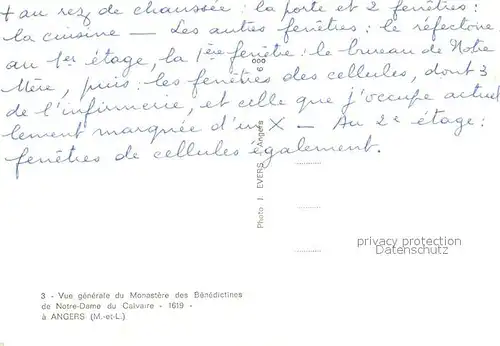 + au rez de chaussée : la porte et 2 fenêtres :
la cuisine — Les autres fenêtres : le réfectoire
au 1er étage, la 1ère fenêtre : le bureau de Notre
Mère, puis : les fenêtres des cellules, dont 3
de l'infirmerie, et celle que j'occupe actuel
lement marquée d'un X — Au 2e étage :
fenêtres de cellules également.
Photo J. EVERS - Angers
privacy protection
Datenschutz
3 - Vue générale du Monastère des Bénédictines
de Notre-Dame du Calvaire - 1619 -
à ANGERS (M.-et-L.)